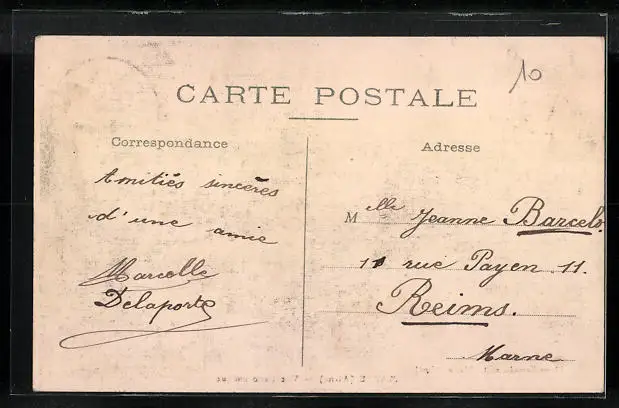 10
CARTE POSTALE
Correspondance
Amitiés sincères
d'une amie
Marcelle
Delaporte
Adresse
Melle Jeanne Barcelo.
11 rue Payen 11.
Reims.
Marne